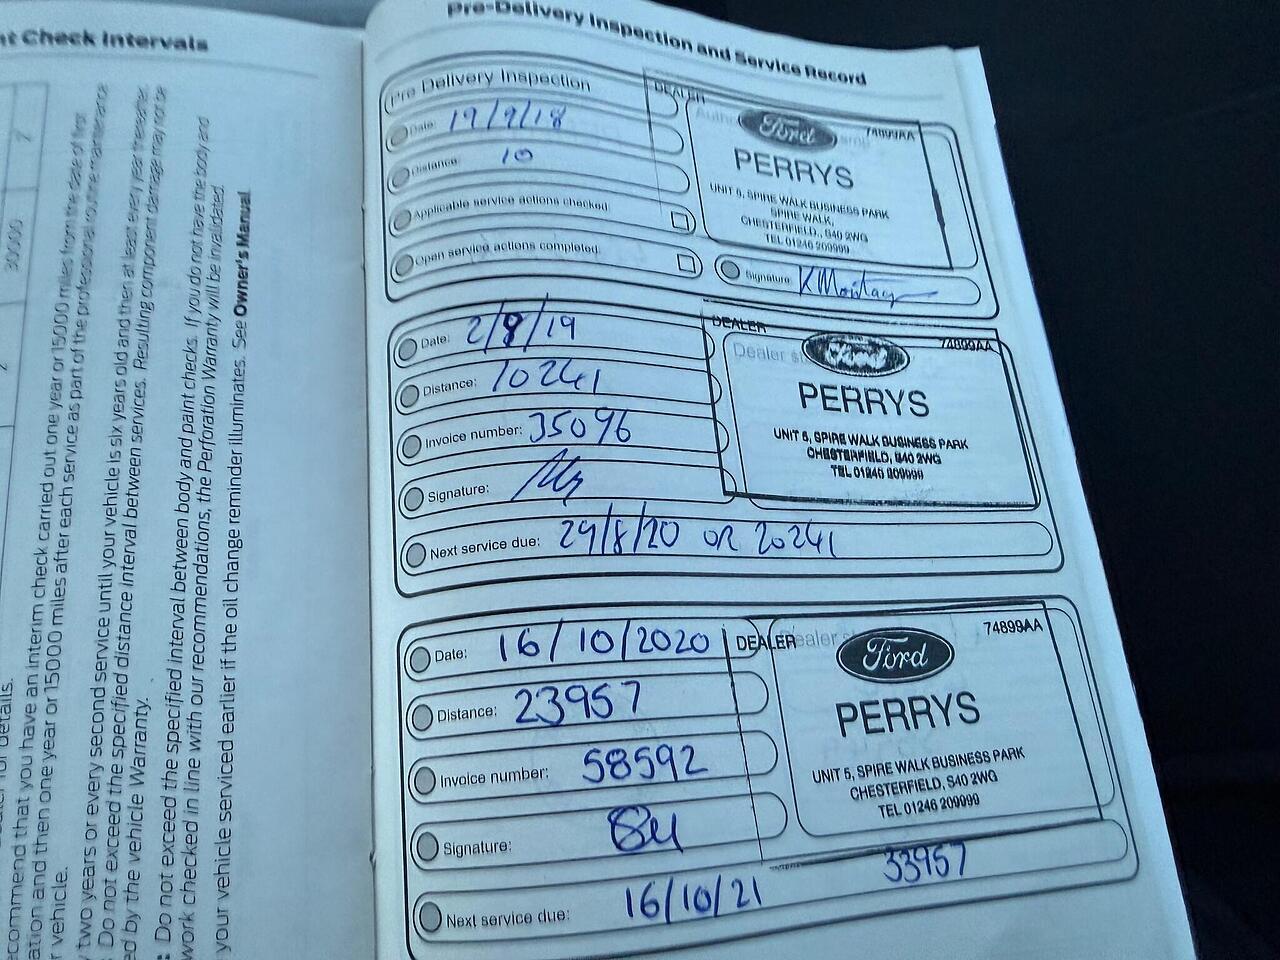 nt Check Intervals
30000
ecommend that you have an interim check carried out one year or 15000 miles from the date of first
ation and then one year or 15000 miles after each service as part of the professional routine maintenance
r vehicle.
y two years or every second service until your vehicle is six years old and then at least every year thereafter.
Do not exceed the specified distance interval between services. Resulting component damage may not be
ed by the vehicle Warranty.
: Do not exceed the specified interval between body and paint checks. If you do not have the body and
work checked in line with our recommendations, the Perforation Warranty will be invalidated.
your vehicle serviced earlier if the oil change reminder illuminates. See Owner's Manual.
Pre-Delivery Inspection and Service Record
Pre Delivery Inspection
Date: 19/9/18
Distance: 10
Applicable service actions checked:
Open service actions completed:
DEALER
Ford
74899AA
PERRYS
UNIT 5, SPIRE WALK BUSINESS PARK
SPIRE WALK,
CHESTERFIELD., S40 2WG
TEL 01246 209999
Signature:
Date: 2/9/19
Distance: 10241
Invoice number: 35096
Signature:
Next service due: 29/8/20 OR 20241
DEALER
Dealer st
74899AA
PERRYS
UNIT 5, SPIRE WALK BUSINESS PARK
CHESTERFIELD, S40 2WG
TEL 01246 209999
Date: 16/10/2020
Distance: 23957
Invoice number: 58592
Signature:
Next service due: 16/10/21 33957
DEALER
ealer s
Ford
74899AA
PERRYS
UNIT 5, SPIRE WALK BUSINESS PARK
CHESTERFIELD, S40 2WG
TEL 01246 209999